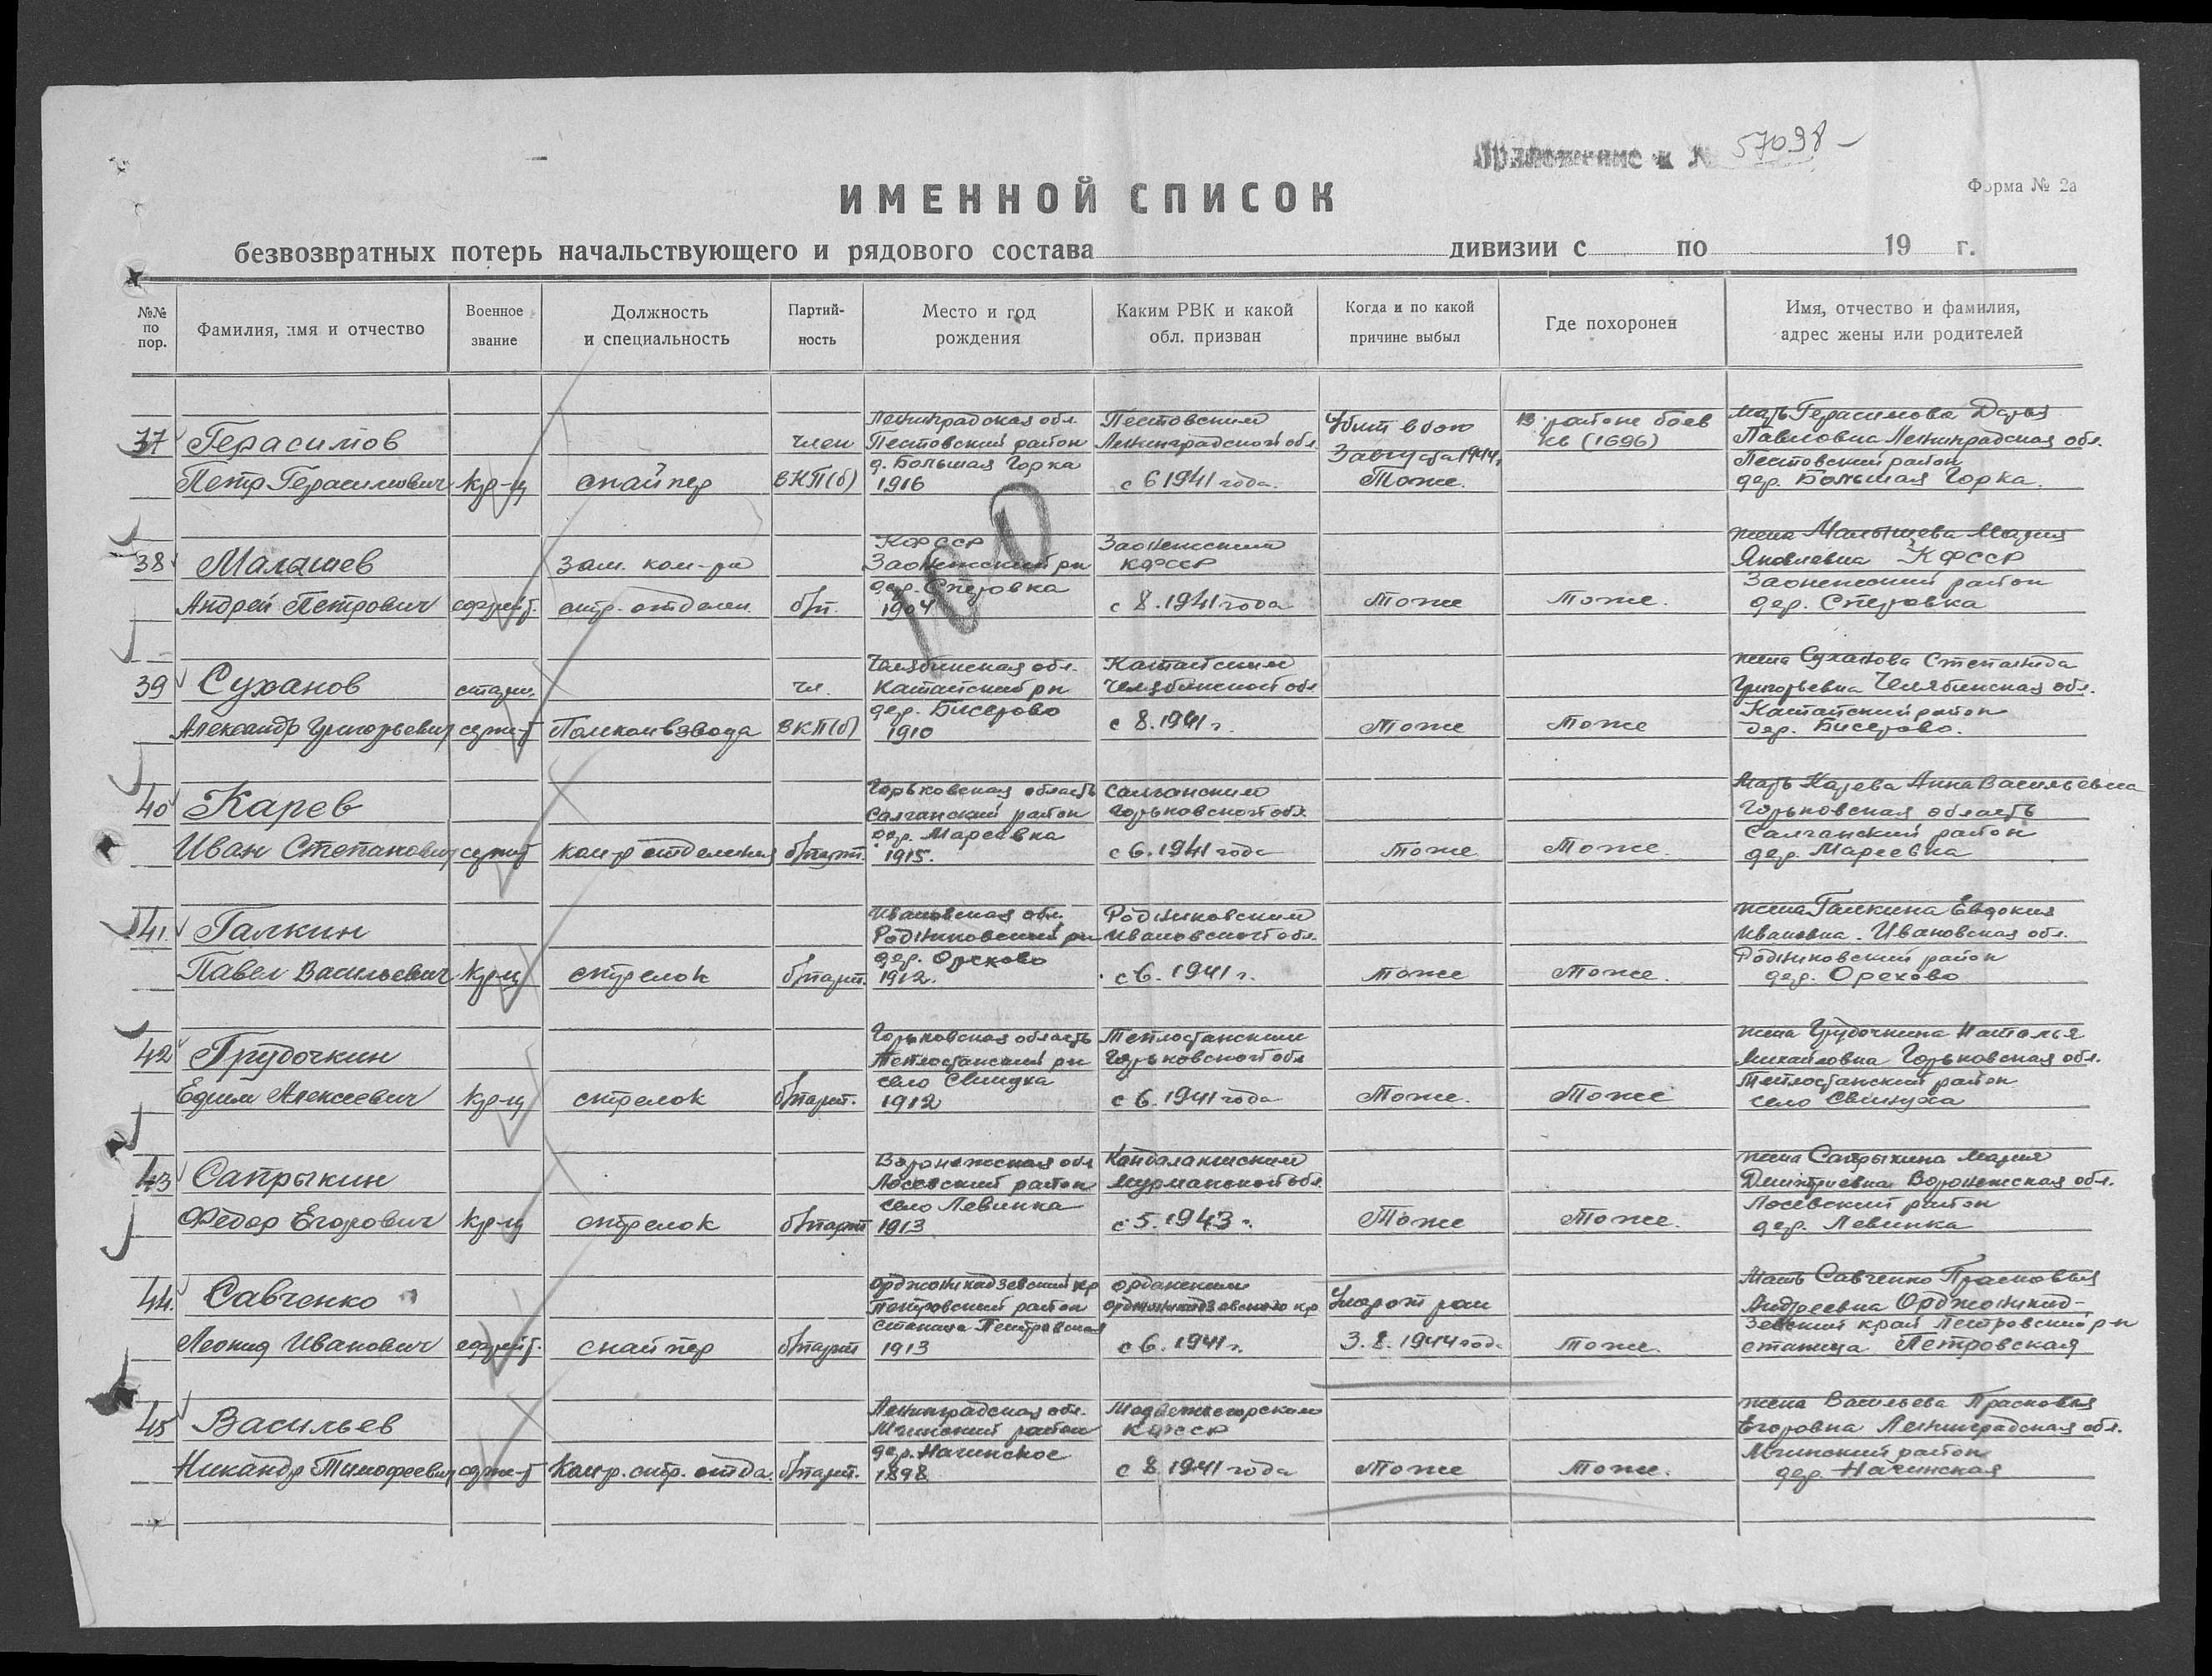 Приложение к № 57098
ИМЕННОЙ СПИСОК
Форма № 2а
безвозвратных потерь начальствующего и рядового состава дивизии с по 19 г.
№№ по пор.
Фамилия, имя и отчество
Военное звание
Должность и специальность
Партий-ность
Место и год рождения
Каким РВК и какой обл. призван
Когда и по какой причине выбыл
Где похоронен
Имя, отчество и фамилия, адрес жены или родителей
37 Герасимов
Петр Герасимович
кр-ц
снайпер
член
ВКП(б)
Ленинградская обл.
Пестовский район
д. Большая Горка
1916
Пестовским
Ленинградской обл.
с 6 1941 года.
Убит в бою
3 августа 1944г.
Тоже.
В районе боев
кв (1696)
мать Герасимова Дарья
Павловна Ленинградская обл.
Пестовский район
дер. Большая Горка.
38 Малашев
Андрей Петрович
ефрейт.
Зам. ком-ра
стр. отделен.
б/п.
КФССР
Заонежский рн
дер. Сперовка
1904
Заонежским
КФССР
с 8.1941 года
Тоже
Тоже.
жена Малышева Мария
Яковлевна КФССР
Заонежский район
дер. Сперовка
39 Суханов
Александр Григорьевич
старш.
серж-т
Помкомвзвода
чл.
ВКП(б)
Челябинская обл.
Катайский рн
дер. Бисерово
1910
Катайским
Челябинской обл
с 8.1941 г.
Тоже
Тоже
жена Суханова Степанида
Григорьевна Челябинская обл.
Катайский район
дер. Бисерово.
40 Карев
Иван Степанович
серж-т
ком-р отделения
б/парт.
Горьковская область
Салганский район
дер. Маресвка
1915.
Салганским
Горьковской обл.
с 6.1941 года
Тоже
Тоже.
Мать Карева Анна Васильевна
Горьковская область
Салганский район
дер. Мареевка
41. Галкин
Павел Васильевич
кр-ц
стрелок
б/парт.
Ивановская обл.
Родниковский рн
дер. Орехово
1912.
Родниковским
Ивановской обл.
с 6. 1941 г.
Тоже
Тоже.
жена Галкина Евдокия
Ивановна. Ивановская обл.
Родниковский район
дер. Орехово
42 Грудочкин
Ефим Алексеевич
кр-ц
стрелок
б/парт.
Горьковская область
Теплостанский рн
село Свинуха
1912
Теплостанским
Горьковской обл
с 6. 1941 года
Тоже.
Тоже
жена Грудочкина Наталья
Михайловна Горьковская обл.
Теплостанский район
село Свинуха
43 Сапрыкин
Федор Егорович
кр-ц
стрелок
б/парт
Воронежская обл
Лосевский район
село Левинка
1913
Кандалакшским
Мурманской обл.
с 5. 1943 г.
Тоже
Тоже.
жена Сапрыкина Мария
Дмитриевна Воронежская обл.
Лосевский район
дер. Левинка
44. Савченко
Леонид Иванович
ефрейт.
снайпер
б/парт
Орджоникадзевский кр
Петровский район
станица Петровская
1913
Орджоникидзевского кр
с 6. 1941 г.
Умер от ран
3. 8. 1944 год.
Тоже.
Мать Савченко Прасковья
Андреевна Орджоникид-
зевский край Петровский р-н
станица Петровская
45 Васильев
Никандр Тимофеевич
серж-т
Ком-р. стр. отд.
б/парт.
Ленинградская обл.
Мгинский район
дер. Начинское
1898
Медвежегорским
КФССР
с 8 1941 года
Тоже
Тоже.
жена Васильева Прасковья
Егоровна Ленинградская обл.
Мгинский район
дер. Начинская